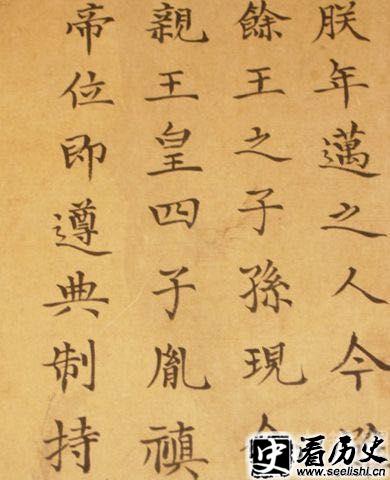 朕年邁之人今
餘王之子孫現
親王皇四子胤禛
帝位即遵典制持
史 看历史
www.seelishi.com